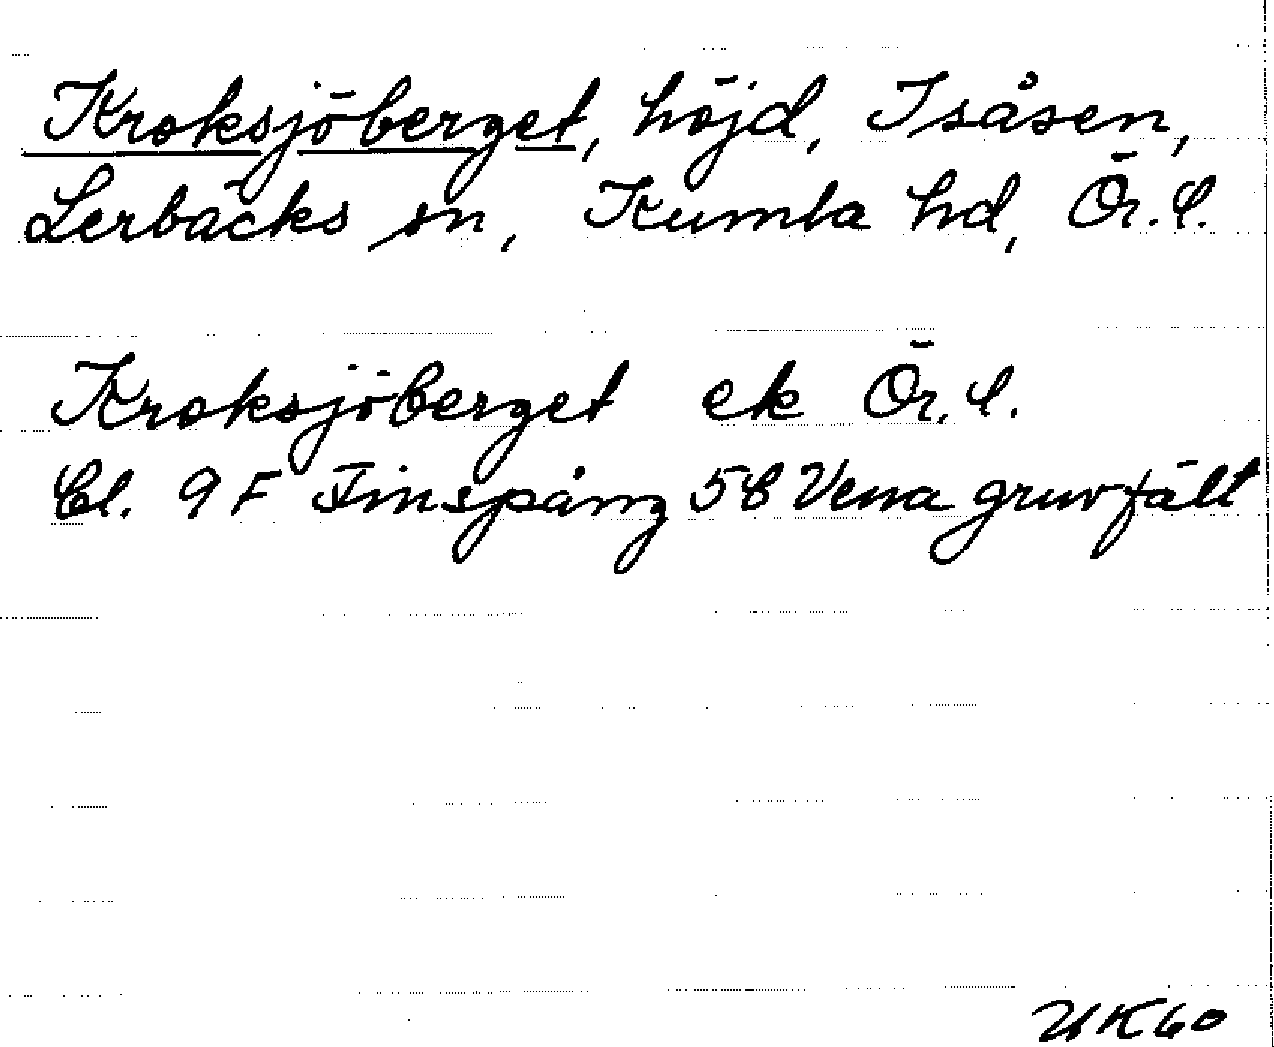 Kroksjöberget, höjd, Isåsen,
Lerbäcks sn, Kumla hd, Ör. l.
Kroksjöberget ek Ör. l.
Bl. 9 F Finspång 5 b Vena gruvfält
UK60